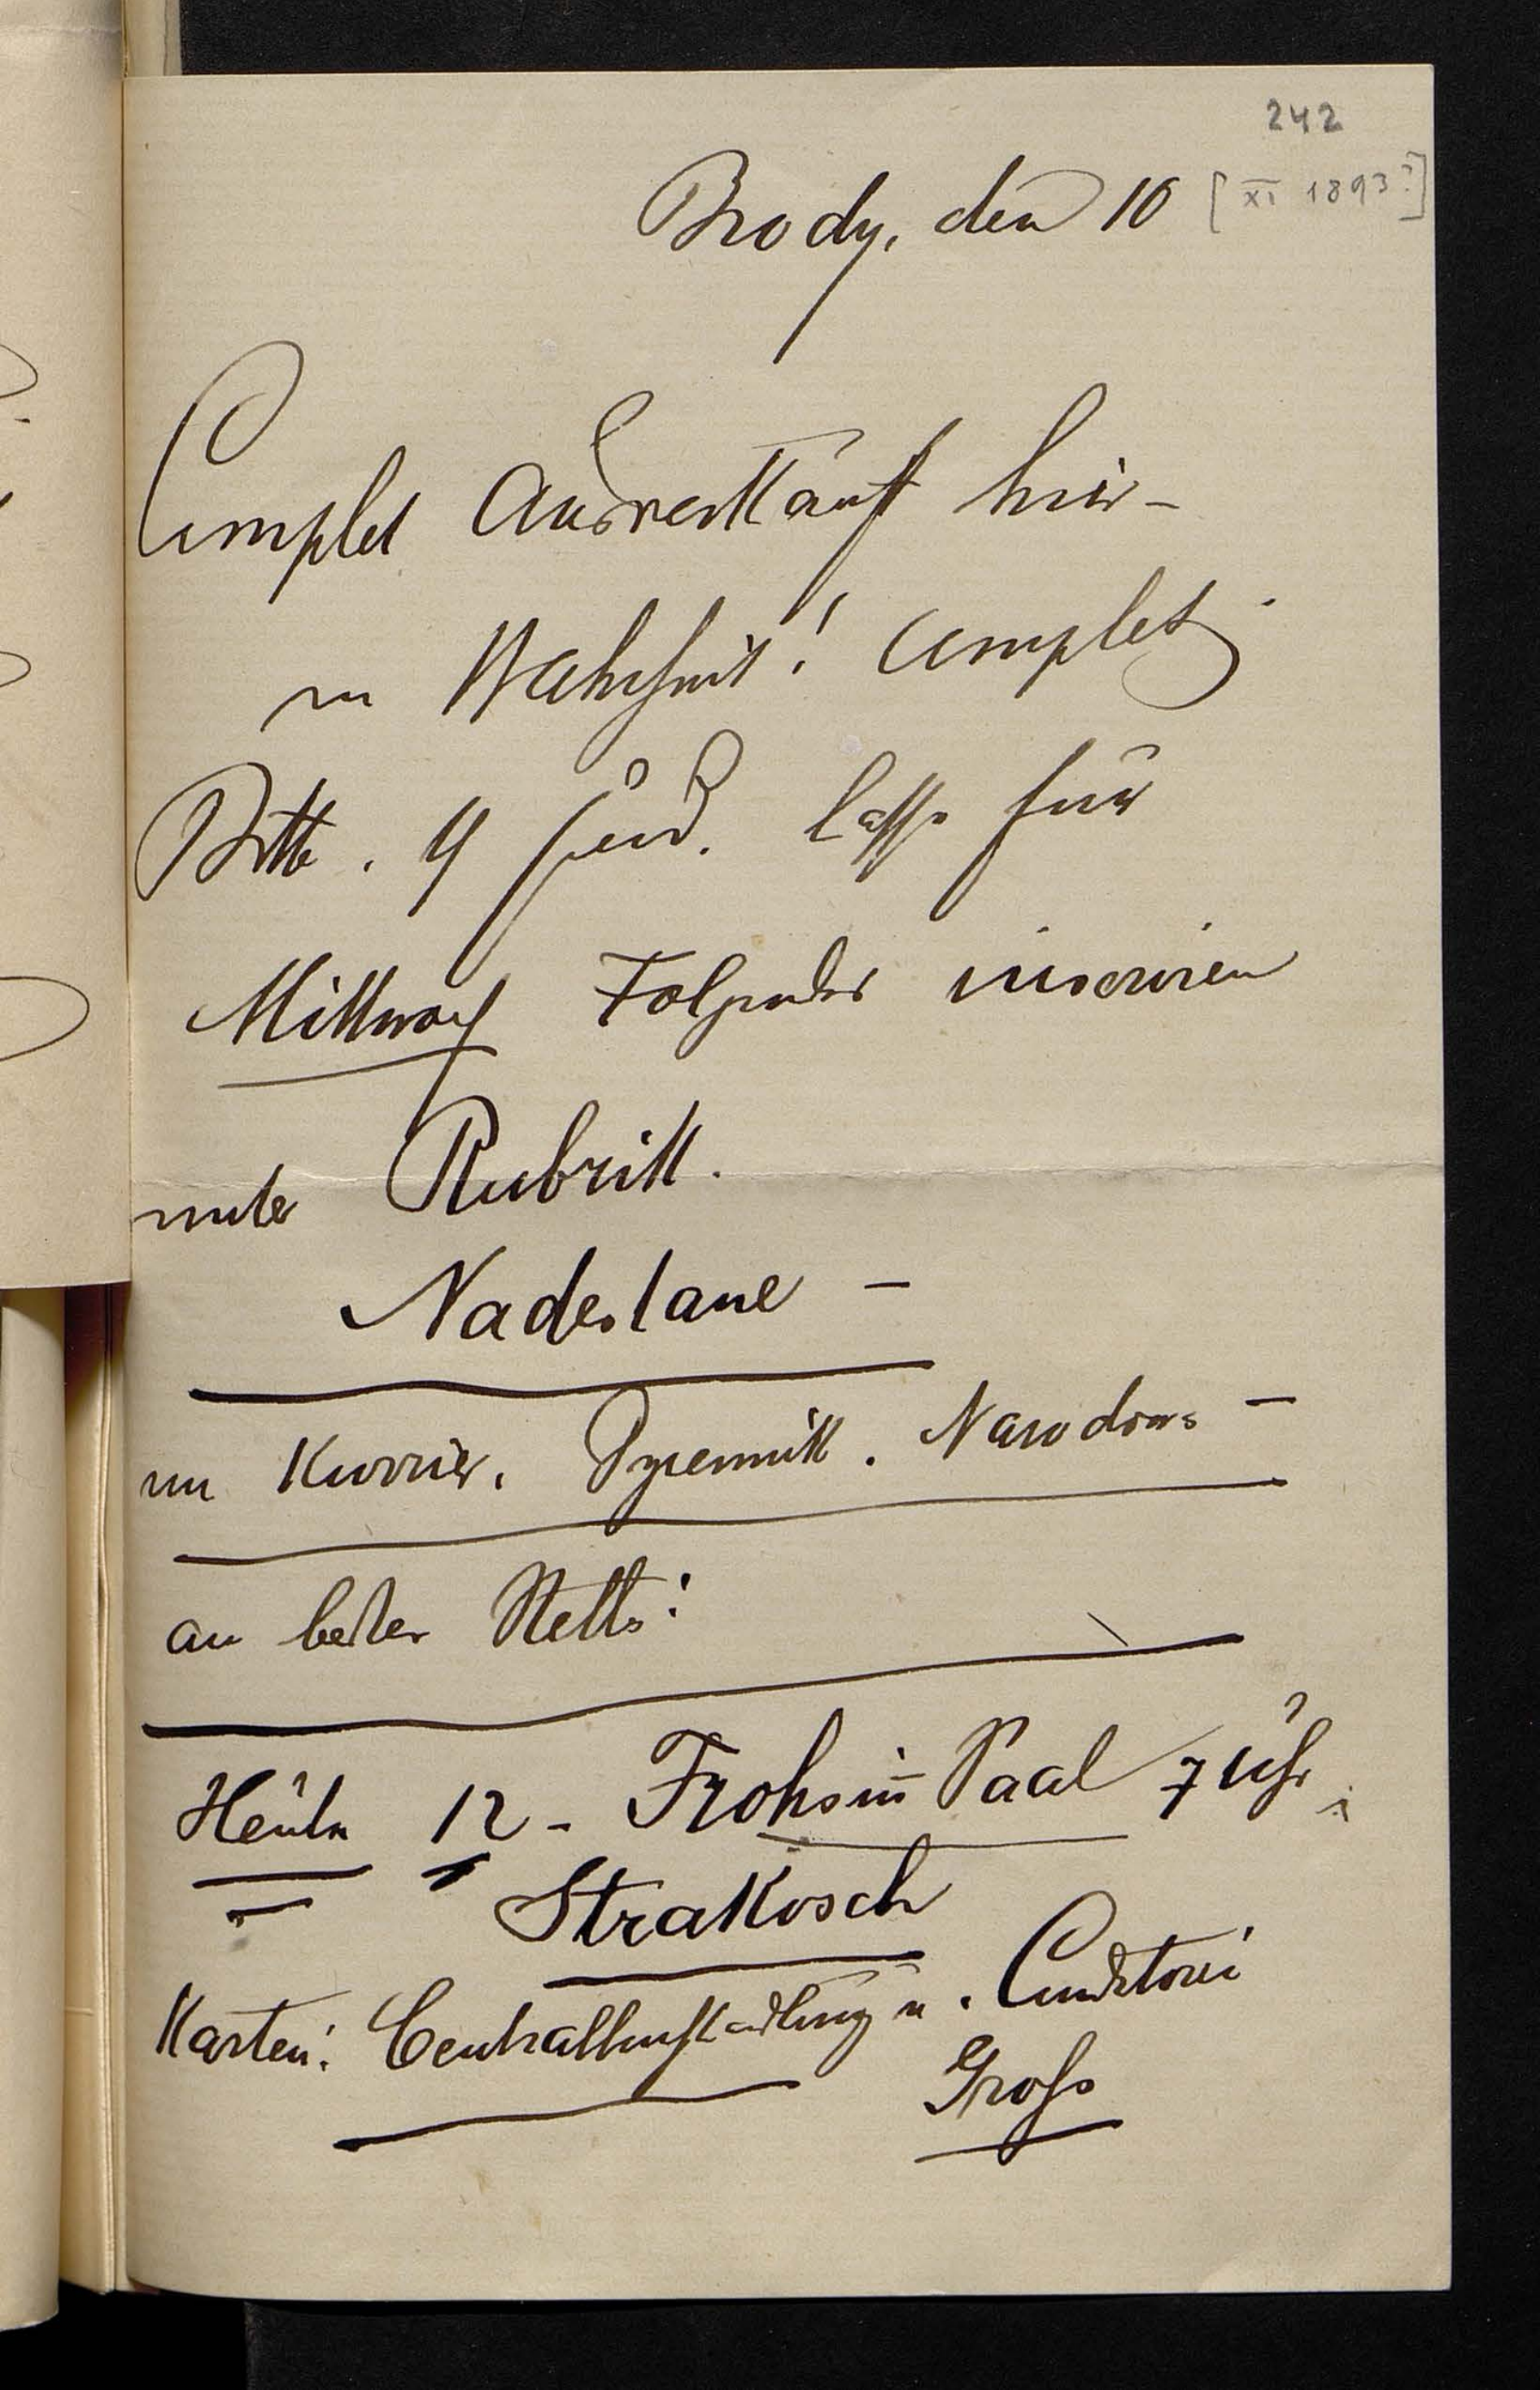 242
Brody, den 10 [XI 1893?]
Complet Ausverkauft hier -
in Wahrheit! complet
Bitte. 4 lasse für
Mittwoch Folgendes inseriren
unter Rubrik.
Nadesłane -
im Kurrier. Dziennik. Narodowa -
an bester Stelle!
Heute 12 - Frohsinn Saal 7 Uhr
Strakosch
Karten: u. Conditorei
Gross